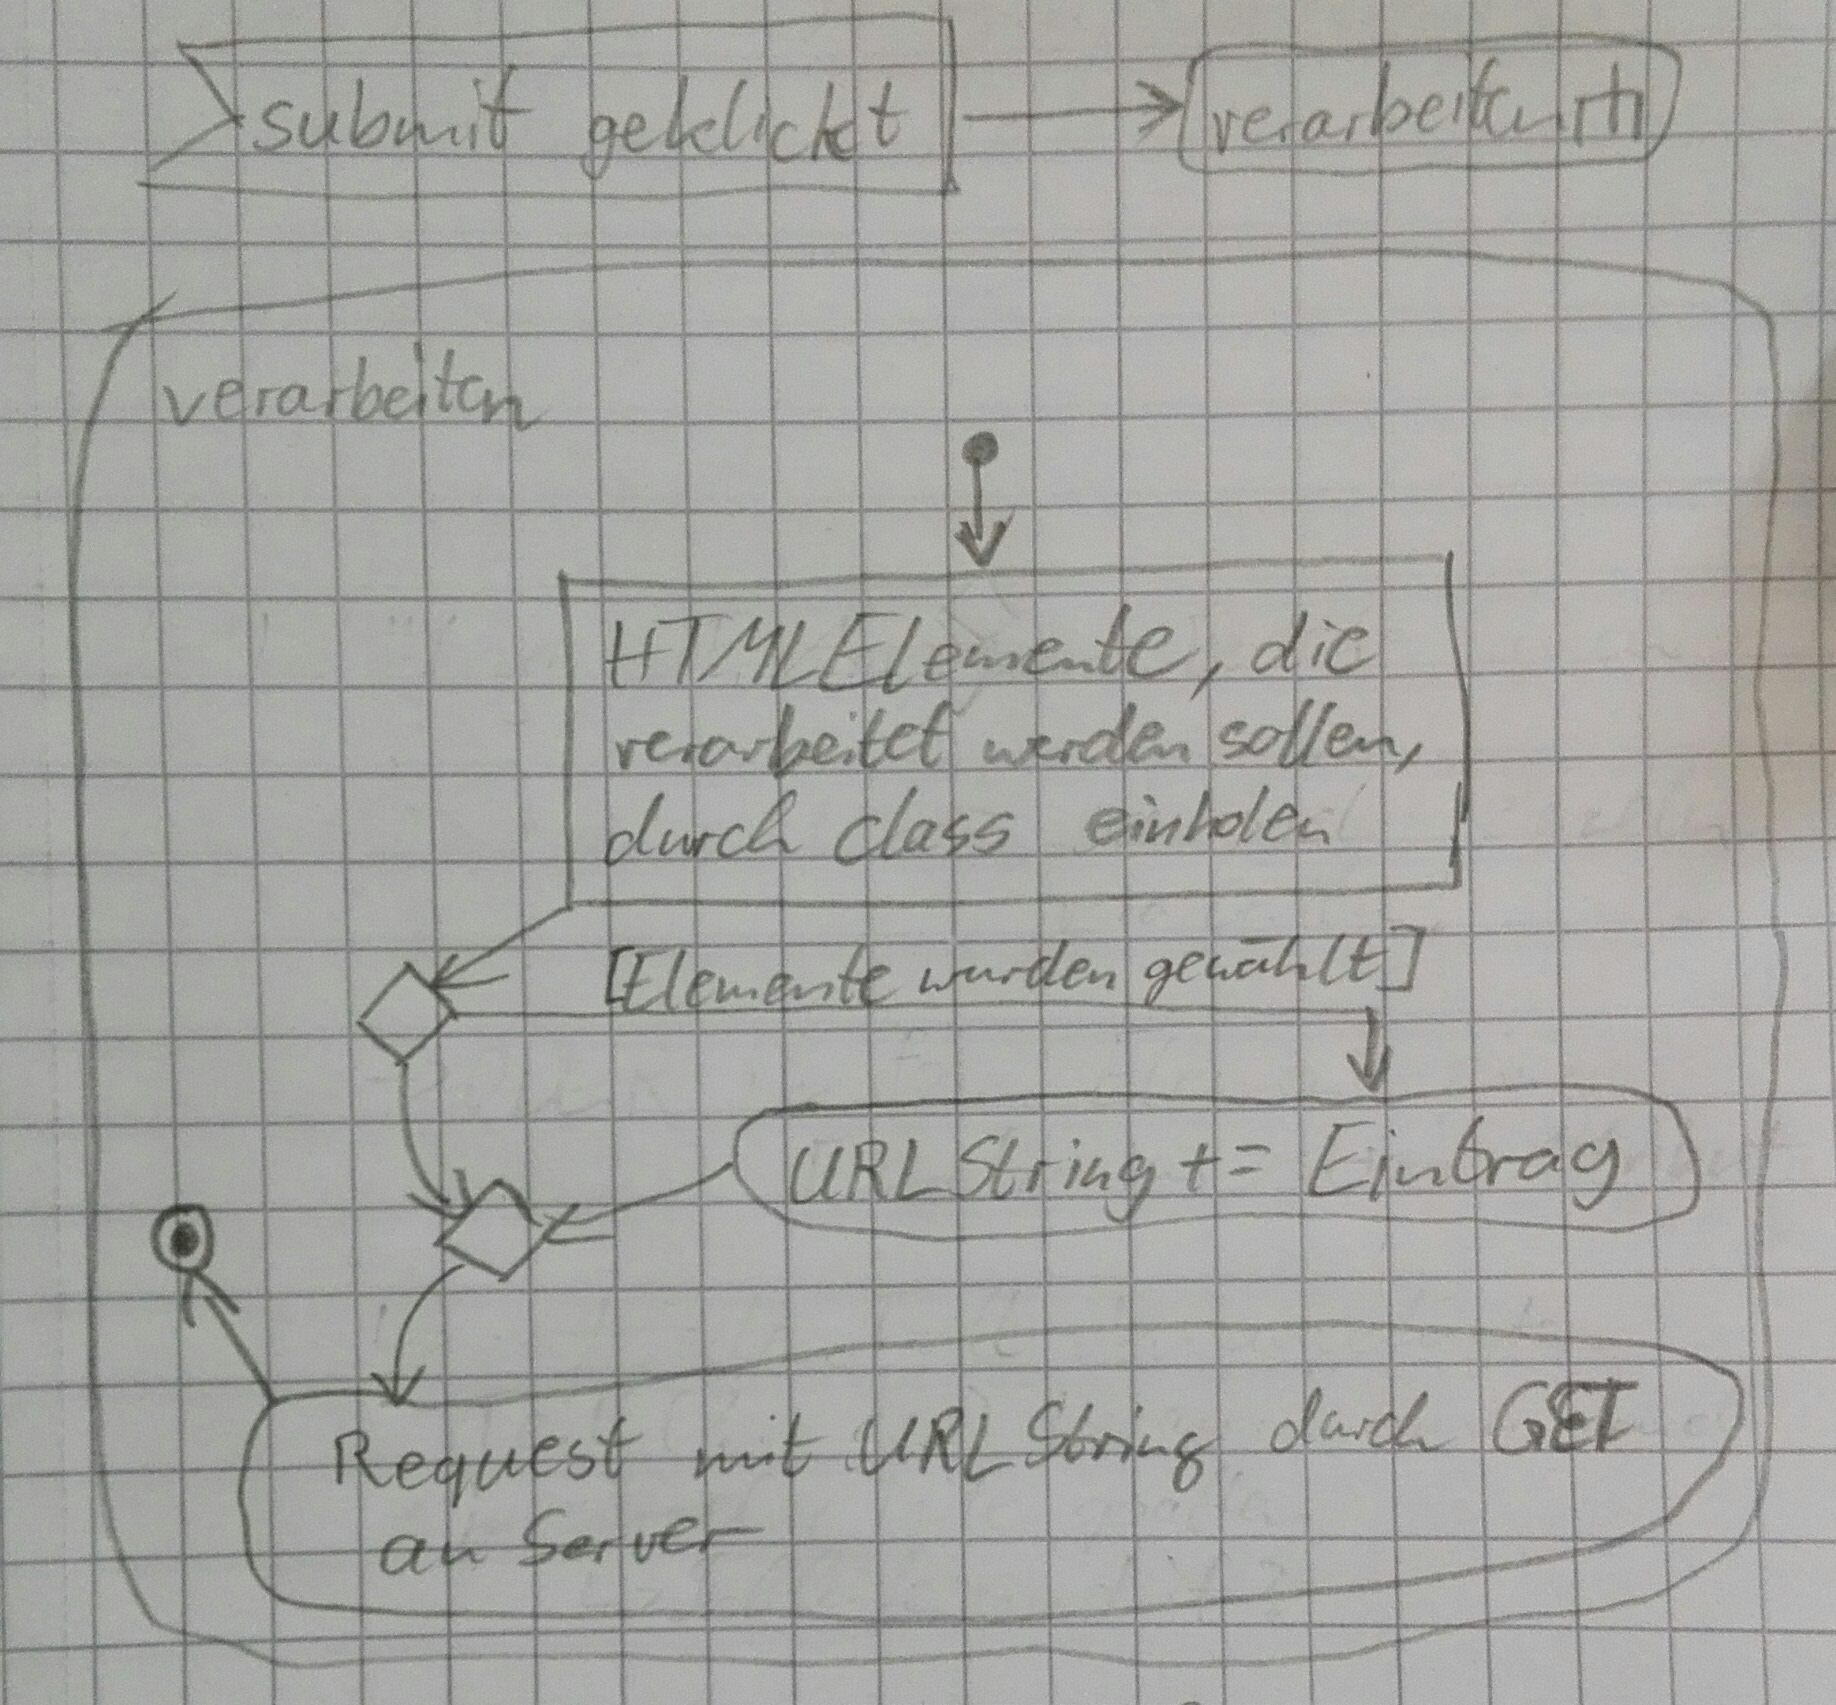 submit geklickt
verarbeiten
verarbeiten
HTMLElemente, die
verarbeitet werden sollen,
durch class einholen
[Elemente wurden gewählt]
URLString += Eintrag
Request mit URLString durch GET
an Server